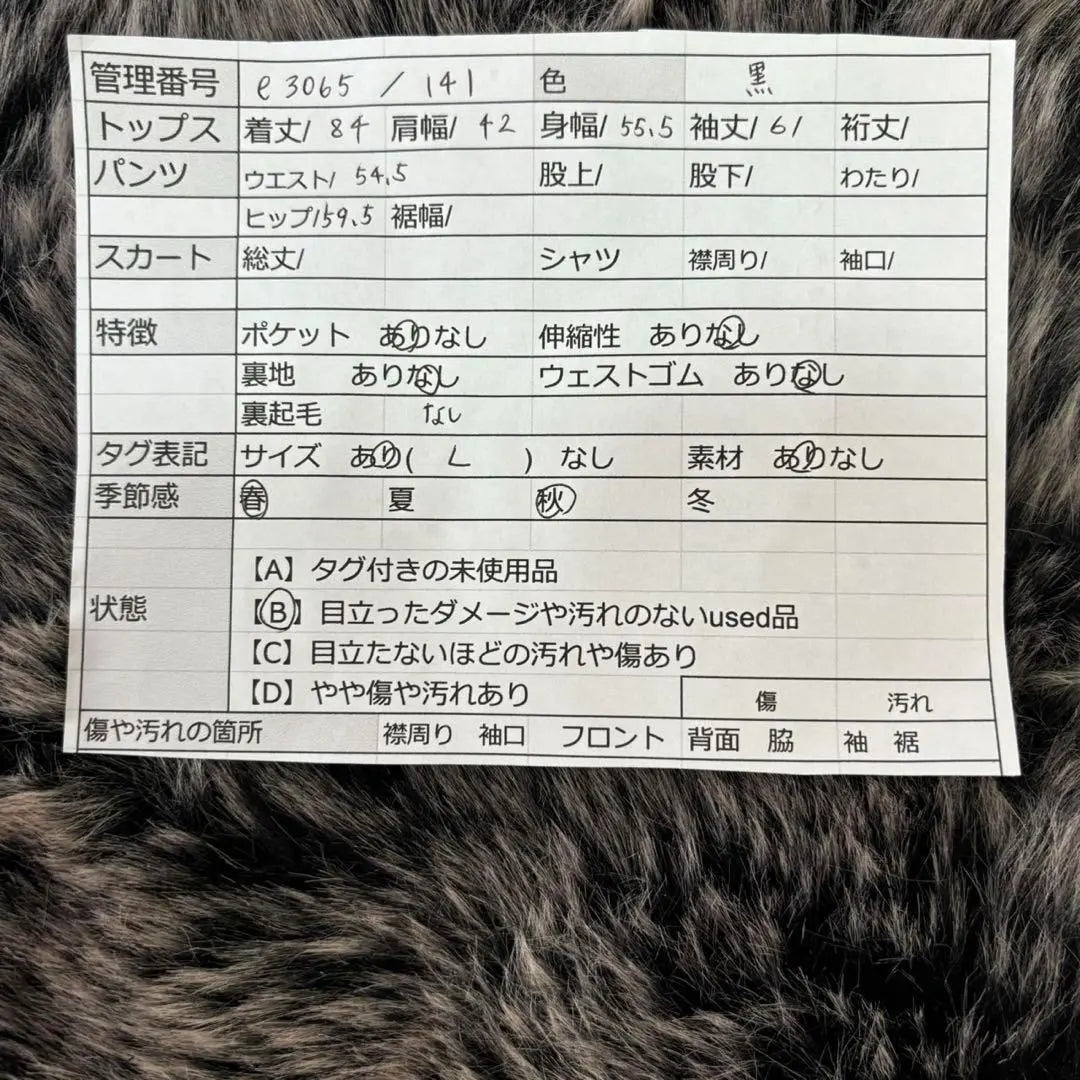 管理番号 e3065 / 141 色 黒
トップス 着丈/ 84 肩幅/ 42 身幅/ 55.5 袖丈/ 61 裄丈/
パンツ ウエスト/ 54.5 股上/ 股下/ わたり/
ヒップ/59.5 裾幅/
スカート 総丈/ シャツ 襟周り/ 袖口/
特徴 ポケット ありなし 伸縮性 ありなし
裏地 ありなし ウェストゴム ありなし
裏起毛 なし
タグ表記 サイズ あり( L ) なし 素材 ありなし
季節感 春 夏 秋 冬
【A】タグ付きの未使用品
状態 【B】目立ったダメージや汚れのないused品
【C】目立たないほどの汚れや傷あり
【D】やや傷や汚れあり 傷 汚れ
傷や汚れの箇所 襟周り 袖口 フロント 背面 脇 袖 裾